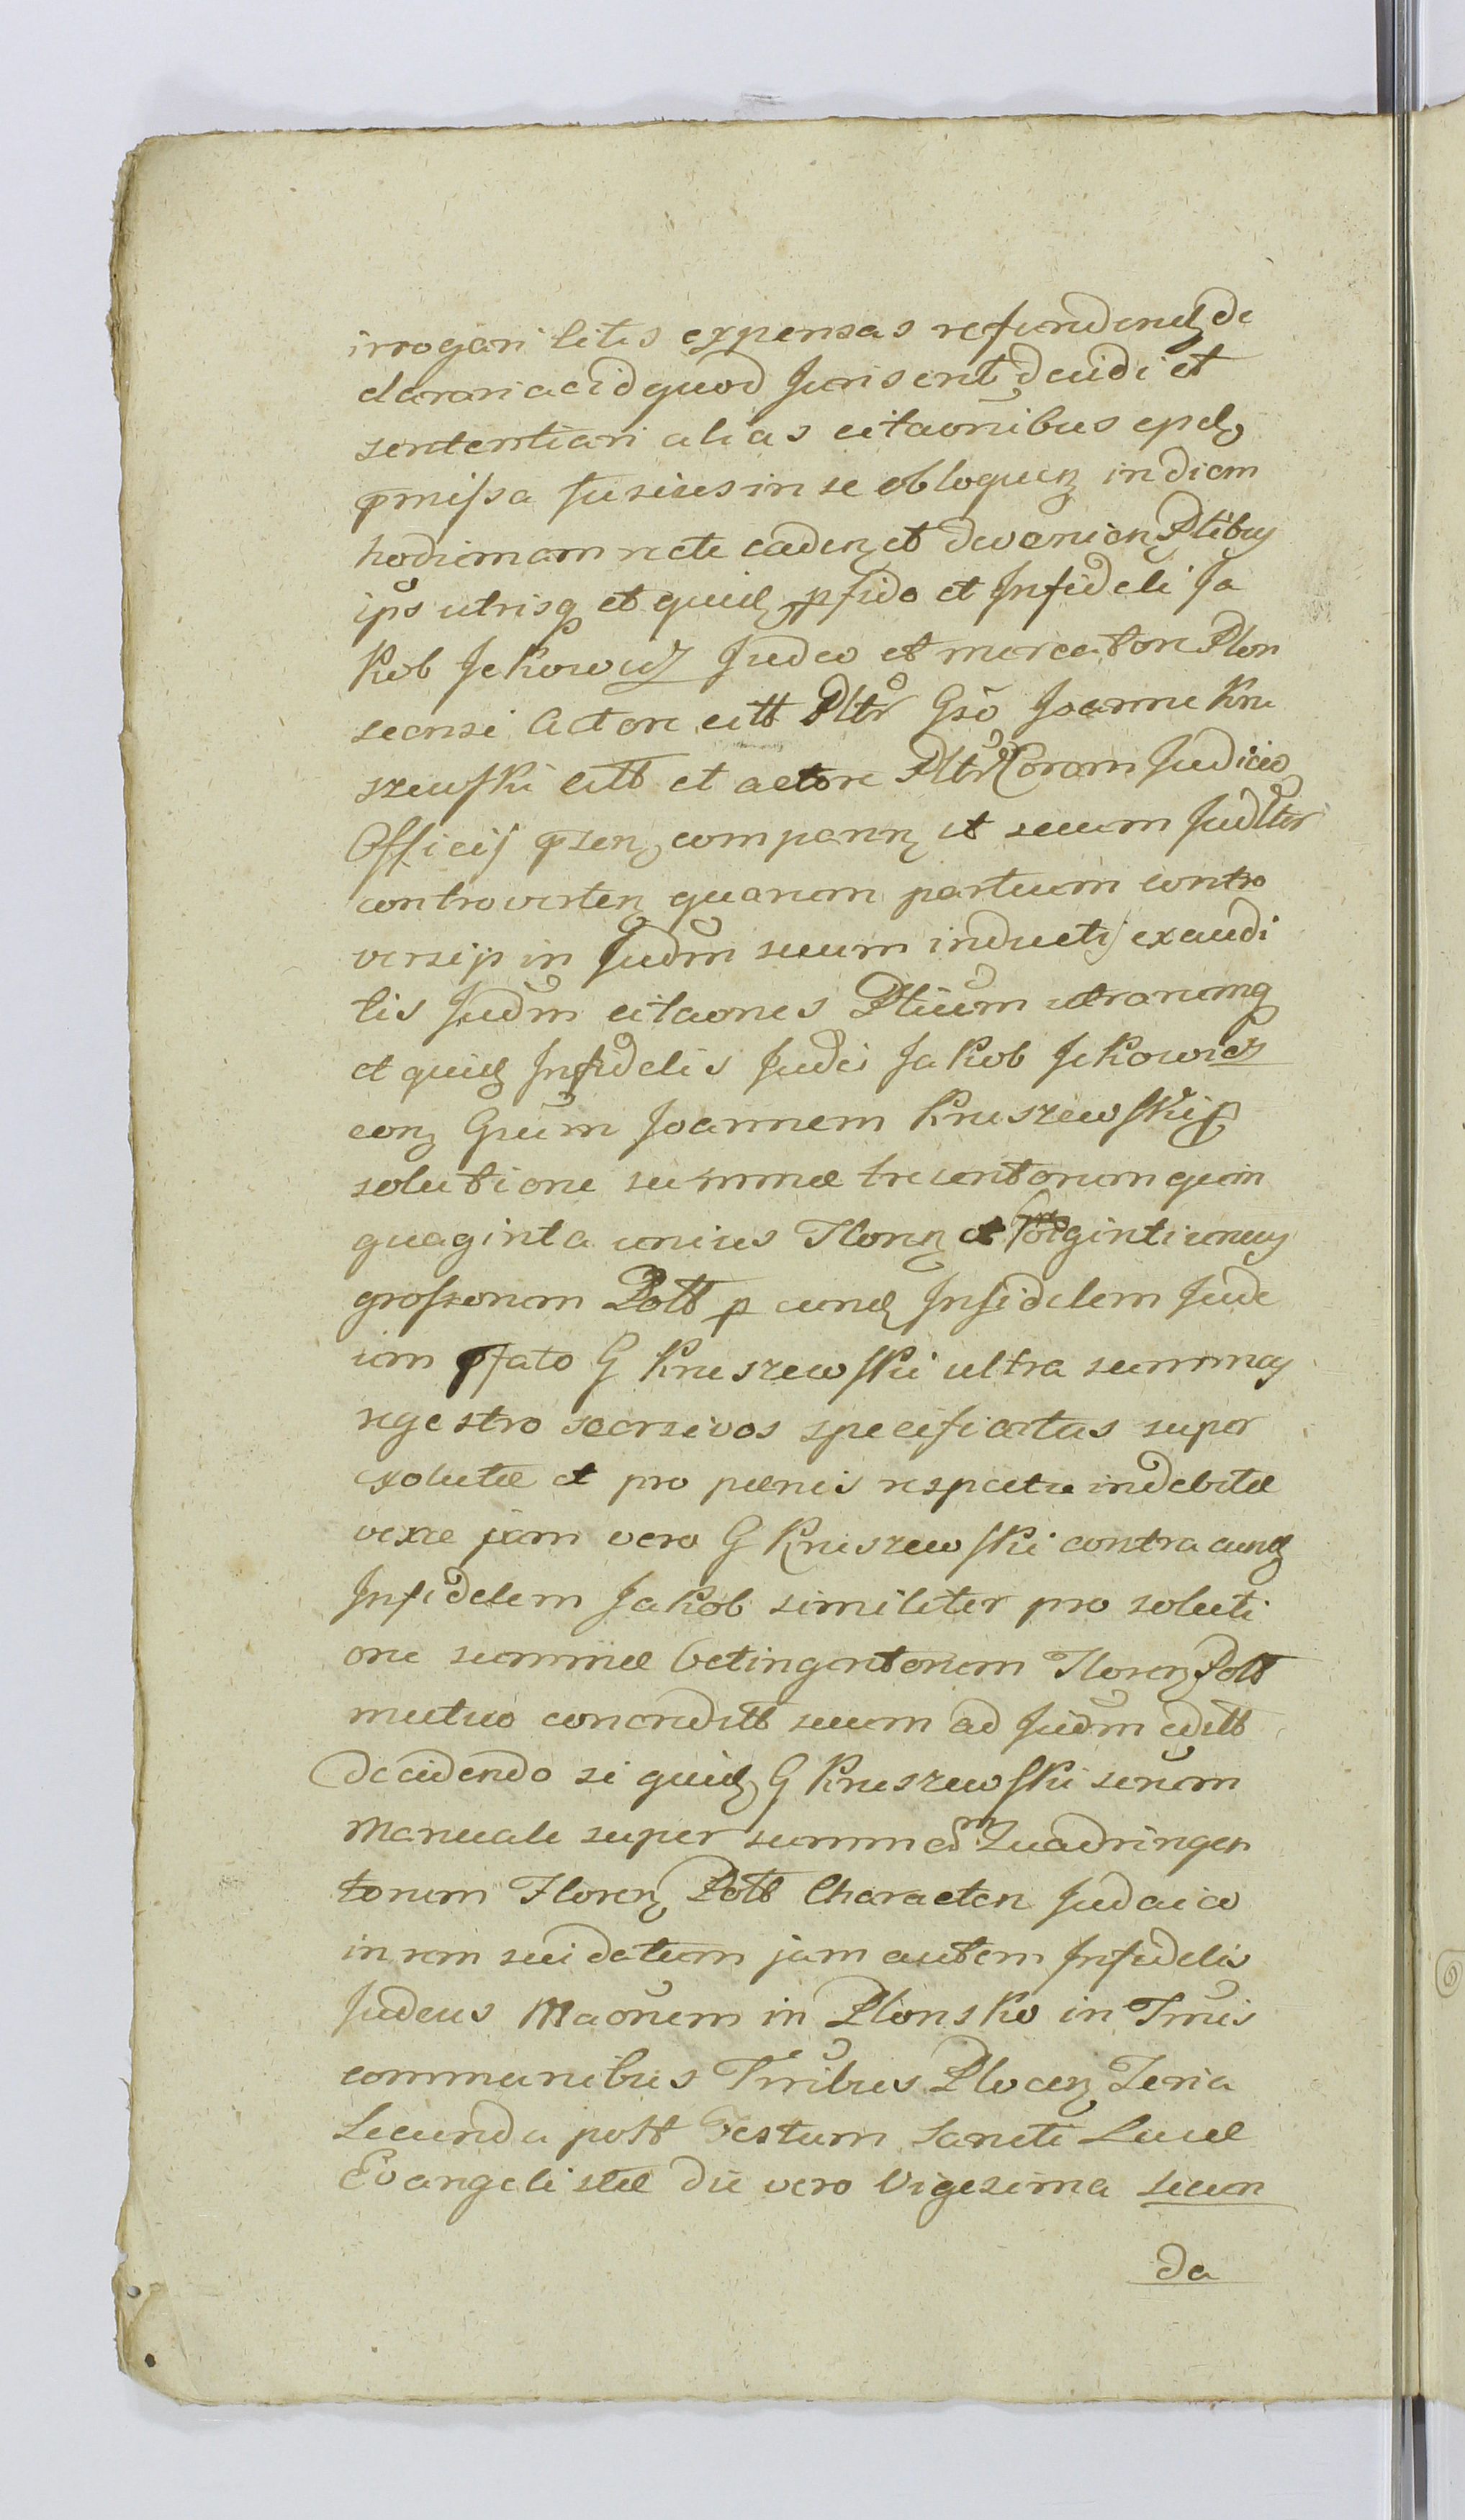 irrogari litis expensas refundendz de
clarari ac id quod Juris erit decidi et
sententiari alias citaonibus epdz
pmissa fusius in se obloquenz in diem
hodiernam recte cadenz et devenienz Ptibus
ips utrisq et quidz pfido et Infideli Ja
Kob JeKowicz Judeo et mercatore Plon
scensi Actore citt Pltr Gso Joanne Kru
szewski citt et actore Pltr Coram Judicio
Officij psenz comparenz et secum Judltr
controvertenz quarum partium contro
versijs in Judm suum inductis exaudi
tis Judm citaones Ptium utrarumq
et quidz Infidelis Judei JaKob JeKowicz
conz Gsum Joannem Kruszewski p
solutione summæ trecentorum quin
quaginta unius Florenz et viginti unius
grossorum Poltt p eundz Infidelem Jude
um pfato G Kruszewski ultra summas
regestro seorsivos specificatas super
exolutæ et pro pœnis respectu indebitæ
vexæ jam vero G Kruszewski contra eundz
Infidelem JaKob similiter pro soluti
one summæ Octingentorum Florenz Poltt
mutuo concreditt suum ad Judm editt
Decidendo si quidz G Kruszewski scrium
Manuale super summam Quadringen
torum Florenz Poltt Charactere Judaico
in rem sui datum jam autem Infidelis
Judeus Maonem in PlonsKo in Tmis
communibus Tmibus Plocenz Feria
Secunda post Festum Sancti Lucæ
Evangelistæ die vero Vigesima secun
da